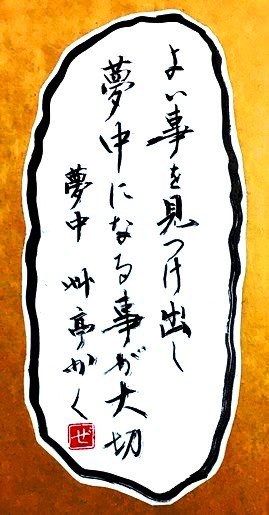 よい事を見つけ出し
夢中になる事が大切
夢中 艸亭かく
ぜ